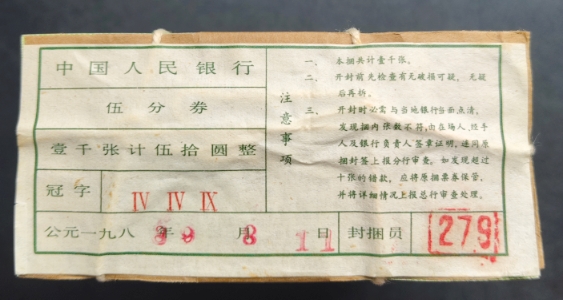 中国人民银行
伍分券
壹千张计伍拾圆整
冠字 IV IV IX
公元一九八 年 月 8 11 日 封捆员 279
注意事项
一、 本捆共计壹千张。
二、 开封前先检查有无破损可疑，无疑
后再拆。
三、 开封时必需与当地银行当面点清，
发现捆内张数不符，由在场人、经手
人及银行负责人签章证明，连同原
捆封签上报分行审查。如发现超过
十张的错款，应将原捆票券保管，
并将详细情况上报总行审查处理。